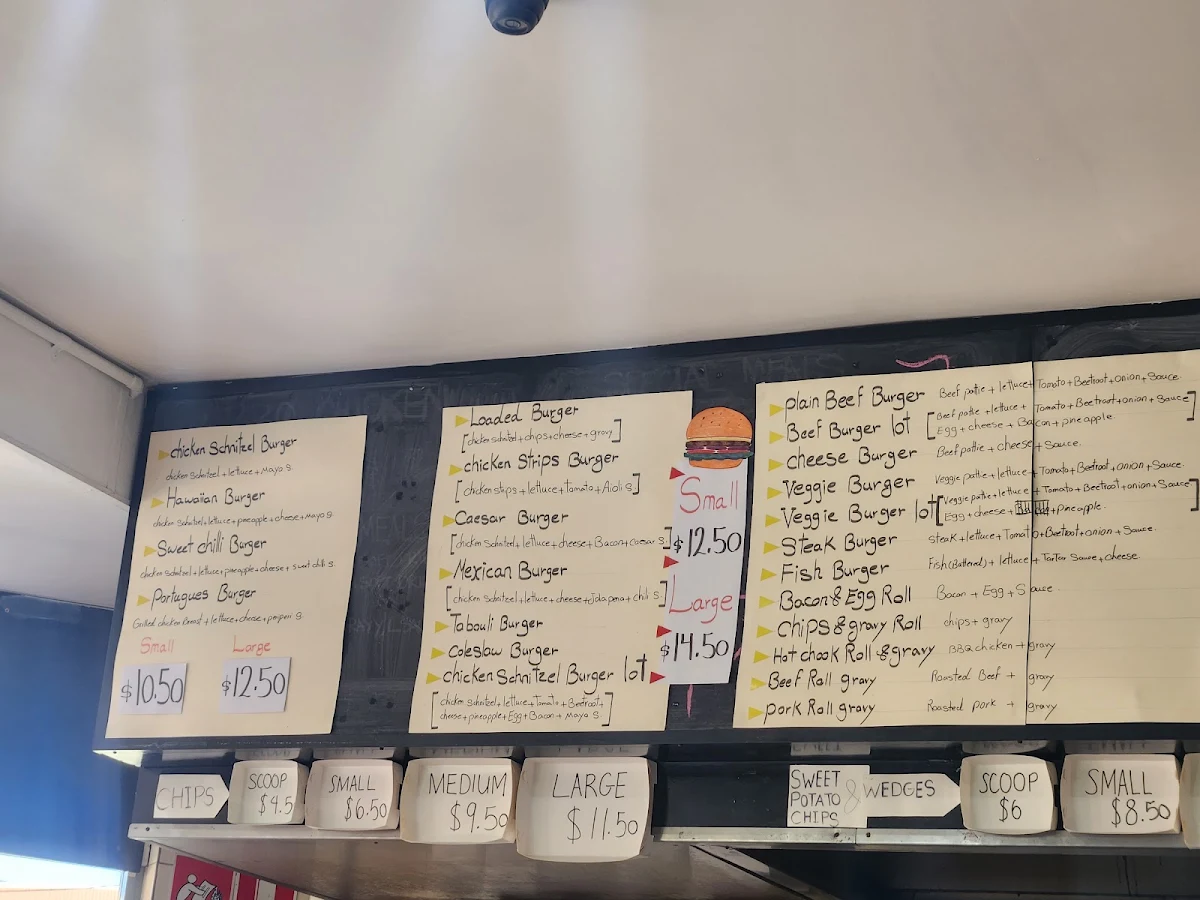 chicken Schnitzel Burger
chicken Schnitzel + lettuce + Mayo S
Hawaiian Burger
chicken Schnitzel + lettuce + pineapple + cheese + Mayo S
Sweet chilli Burger
chicken Schnitzel + lettuce + pineapple + cheese + Sweet chilli S.
Portugues Burger
Grilled chicken Breast + lettuce + cheese + periperi S
Small Large
$10.50 $12.50
Loaded Burger
[chicken schnitzel + chips + cheese + gravy]
chicken Strips Burger
[chicken strips + lettuce + tomato + Aioli S]
Caesar Burger
[chicken Schnitzel + lettuce + cheese + Bacon + Caesar S.]
Mexican Burger
[chicken Schnitzel + lettuce + cheese + Jalapena + chili S]
Tabouli Burger
coleslaw Burger
chicken Schnitzel Burger lot
[chicken schnitzel + lettuce + Tomato + Beetroot +
cheese + pineapple + Egg + Bacon + Mayo S]
Small
$12.50
Large
$14.50
plain Beef Burger Beef pattie + lettuce + Tomato + Beetroot + onion + Sauce
Beef Burger lot [Beef pattie + lettuce + Tomato + Beetroot + onion + Sauce]
Egg + cheese + Bacon + pineapple
cheese Burger Beef pattie + cheese + Sauce.
Veggie Burger Veggie pattie + lettuce + Tomato + Beetroot + onion + Sauce.
Veggie Burger lot [Veggie pattie + lettuce + Tomato + Beetroot + onion + Sauce]
Egg + cheese + pineapple.
Steak Burger steak + lettuce + Tomato + Beetroot + onion + Sauce.
Fish Burger Fish (Battered) + lettuce + Tartar Sauce + cheese.
Bacon & Egg Roll Bacon + Egg + Sauce
Chips & gravy Roll chips + gravy
Hot chook Roll & gravy BBQ chicken + gravy
Beef Roll gravy Roasted Beef + gravy
pork Roll gravy Roasted pork + gravy
CHIPS
SCOOP
$4.5
SMALL
$6.50
MEDIUM
$9.50
LARGE
$11.50
SWEET
POTATO
CHIPS
& WEDGES
SCOOP
$6
SMALL
$8.50